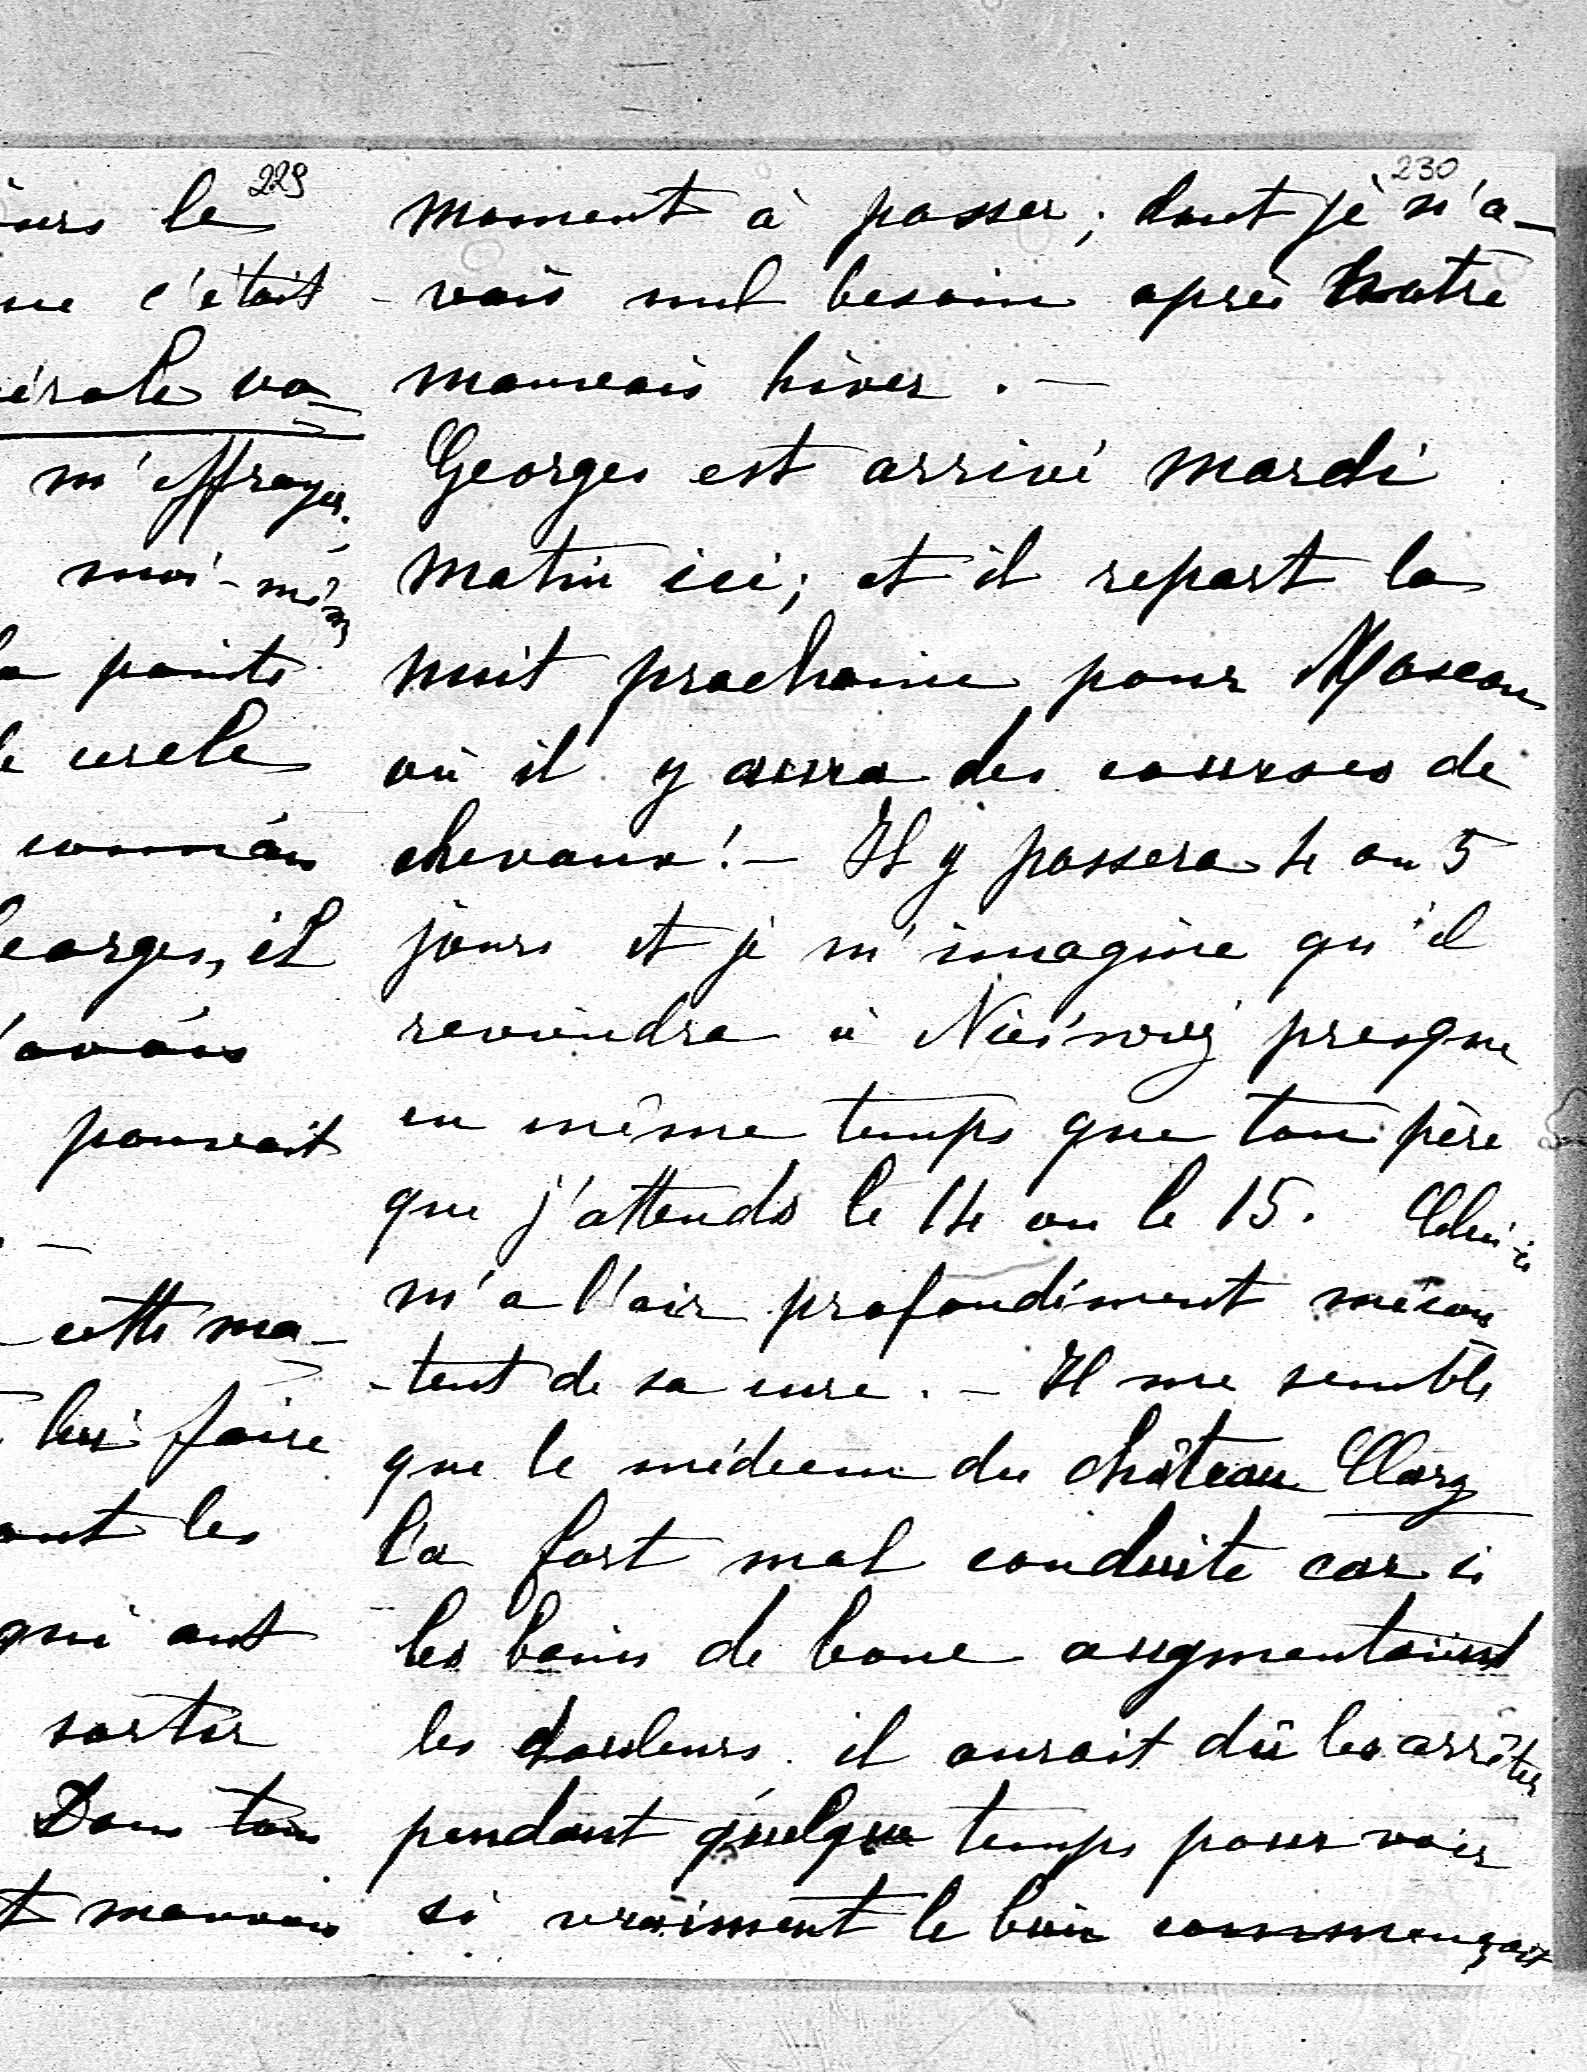 229
le
c'était
m'effrayer.
moi-mêm
pointe
eorges, il
pouvait
cette ma-
lui faire
ont les
qui ont
sortir
Dans ton
mauvais
230
moment à passer; dont je n'a-
-vais nul besoin après notre
mauvais hiver. -
Georges est arrivé mardi
matin ici; et il repart la
nuit prochaine pour Moscou
où il y aura des courses de
chevaux! - Il y passera 4 ou 5
jours et je m'imagine qu'il
reviendra à presque
en même temps que ton père
que j'attends le 14 ou le 15. Celui-ci
m'a l'air profondément mécon
-tent de sa cure. - Il me semble
que le médecin du château
l'a fort mal conduite car si
les bains de boue augmentaient
les douleurs il aurait dû les arrêter
pendant quelque temps pour voir
si vraiment le bain commençait